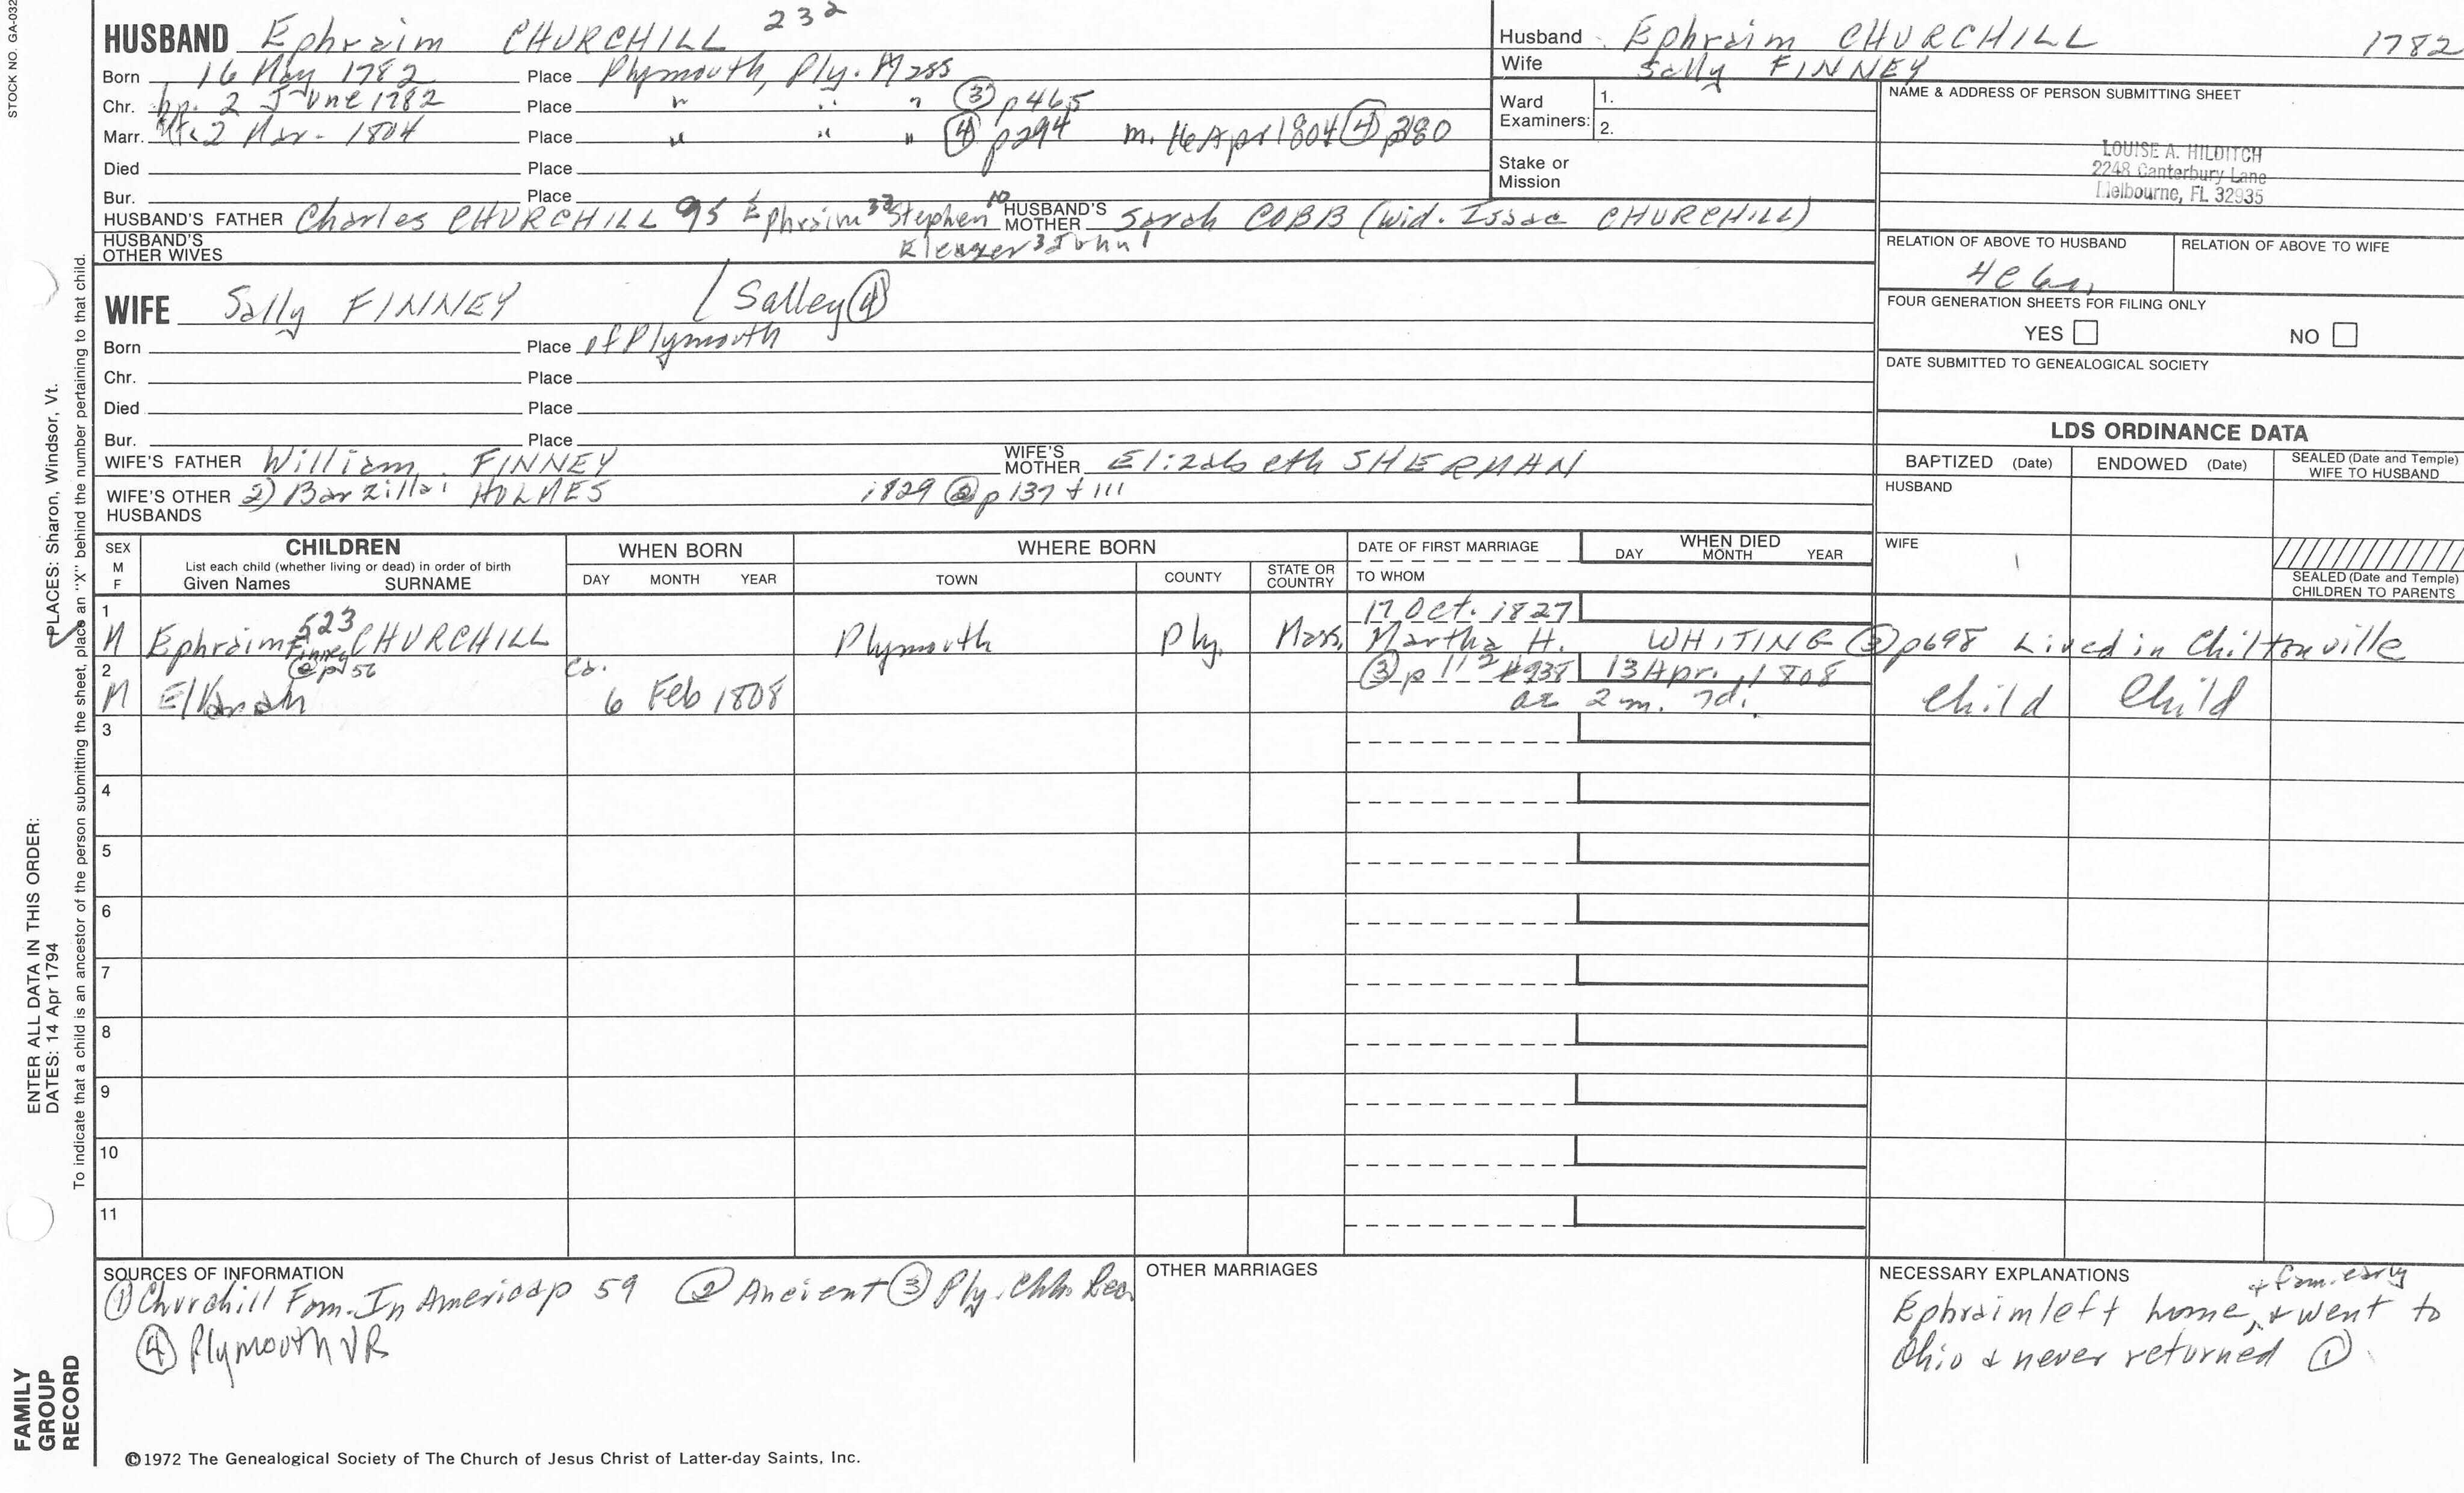 STOCK NO. GA-032
HUSBAND Ephraim CHURCHILL 232
Born 16 May 1782 Place Plymouth, Ply. Mass
Chr. bp. 2 June 1782 Place " " " ③ p465
Marr. 2 Mar. 1804 Place " " " ④ p294 m. 16 Apr 1804 ④ p280
Died Place
Bur. Place
HUSBAND'S FATHER Charles CHURCHILL 95 Ephraim 32 Stephen 10 HUSBAND'S MOTHER Sarah COBB (wid. Issac CHURCHILL)
Eleazer 3 John 1
HUSBAND'S OTHER WIVES
WIFE Sally FINNEY / Salley ④
Born Place of Plymouth
Chr. Place
Died Place
Bur. Place
WIFE'S FATHER William FINNEY WIFE'S MOTHER Elizabeth SHERMAN
WIFE'S OTHER HUSBANDS 2) Barzillai HOLMES 1829 ② p 137 + 111
Husband Ephraim CHURCHILL 1782
Wife Sally FINNEY
Ward Examiners: 1.
2.
Stake or Mission
NAME & ADDRESS OF PERSON SUBMITTING SHEET
LOUISE A. HILDITCH
2248 Canterbury Lane
Melbourne, FL 32935
RELATION OF ABOVE TO HUSBAND RELATION OF ABOVE TO WIFE
FOUR GENERATION SHEETS FOR FILING ONLY
YES NO
DATE SUBMITTED TO GENEALOGICAL SOCIETY
LDS ORDINANCE DATA
BAPTIZED (Date) ENDOWED (Date) SEALED (Date and Temple) WIFE TO HUSBAND
HUSBAND
WIFE
SEALED (Date and Temple) CHILDREN TO PARENTS
SEX M F CHILDREN List each child (whether living or dead) in order of birth Given Names SURNAME
WHEN BORN DAY MONTH YEAR
WHERE BORN TOWN COUNTY STATE OR COUNTRY
DATE OF FIRST MARRIAGE TO WHOM
WHEN DIED DAY MONTH YEAR
1 17 Oct. 1827
M Ephraim Finney 523 CHURCHILL Plymouth Ply. Mass. Martha H. WHITING ③ p698 Lived in Chiltonville
2 ③ p 112 #938 13 Apr. 1808
M Elkanah ca. 6 Feb 1808 ae 2 m. 7d. Child Child
3
4
5
6
7
8
9
10
11
SOURCES OF INFORMATION
① Churchill Fam. In America p 59 ② Ancient ③ Ply. Chh. Rec
④ Plymouth VR
OTHER MARRIAGES
NECESSARY EXPLANATIONS
+ fam. early
Ephraim left home, + went to
Ohio + never returned ①
©1972 The Genealogical Society of The Church of Jesus Christ of Latter-day Saints, Inc.
FAMILY GROUP RECORD
ENTER ALL DATA IN THIS ORDER:
DATES: 14 Apr 1794
PLACES: Sharon, Windsor, Vt.
To indicate that a child is an ancestor of the person submitting the sheet, place an "X" behind the number pertaining to that child.